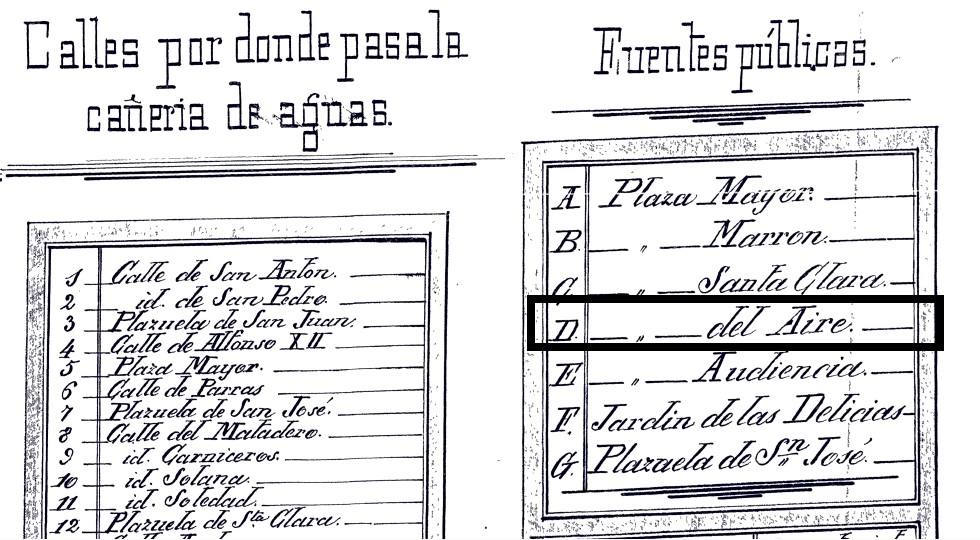 Calles por donde pasa la
cañeria de aguas.
1 Calle de San Anton.
2 id. de San Pedro.
3 Plazuela de San Juan.
4 Calle de Alfonso XII
5 Plaza Mayor.
6 Calle de Parras
7 Plazuela de San José.
8 Calle del Matadero.
9 id. Carniceros.
10 id. Solana.
11 id. Soledad.
12 Plazuela de Sta Clara.
Fuentes públicas.
A Plaza Mayor.
B. „ Marron.
C „ Santa Clara.
D. „ del Aire.
E „ Audiencia.
F. Jardin de las Delicias
G. Plazuela de Sn José.